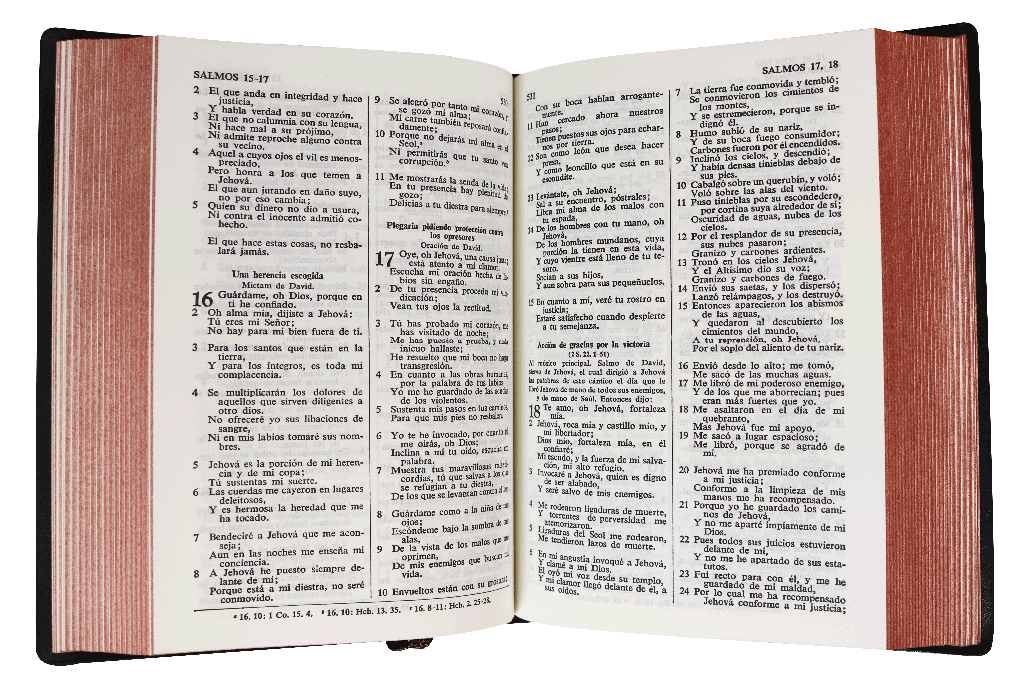 SALMOS 15-17
2 El que anda en integridad y hace
justicia,
Y habla verdad en su corazón.
3 El que no calumnia con su lengua,
Ni hace mal a su prójimo,
Ni admite reproche alguno contra
su vecino.
4 Aquel a cuyos ojos el vil es menos-
preciado,
Pero honra a los que temen a
Jehová.
El que aun jurando en daño suyo,
no por eso cambia;
5 Quien su dinero no dio a usura,
Ni contra el inocente admitió co-
hecho.
El que hace estas cosas, no resba-
lará jamás.
Una herencia escogida
Mictam de David.
16 Guárdame, oh Dios, porque en
ti he confiado.
2 Oh alma mía, dijiste a Jehová:
Tú eres mi Señor;
No hay para mí bien fuera de ti.
3 Para los santos que están en la
tierra,
Y para los íntegros, es toda mi
complacencia.
4 Se multiplicarán los dolores de
aquellos que sirven diligentes a
otro dios.
No ofreceré yo sus libaciones de
sangre,
Ni en mis labios tomaré sus nom-
bres.
5 Jehová es la porción de mi heren-
cia y de mi copa;
Tú sustentas mi suerte.
6 Las cuerdas me cayeron en lugares
deleitosos,
Y es hermosa la heredad que me
ha tocado.
7 Bendeciré a Jehová que me acon-
seja;
Aun en las noches me enseña mi
conciencia.
8 A Jehová he puesto siempre de-
lante de mí;
Porque está a mi diestra, no seré
conmovido.
9 Se alegró por tanto mi corazón, y
se gozó mi alma;
Mi carne también reposará confia-
damente;
10 Porque no dejarás mi alma en el
Seol,
Ni permitirás que tu santo vea
corrupción.
11 Me mostrarás la senda de la vida;
En tu presencia hay plenitud de
gozo;
Delicias a tu diestra para siempre.
Plegaria pidiendo protección contra
los opresores
Oración de David.
17 Oye, oh Jehová, una causa justa;
está atento a mi clamor.
Escucha mi oración hecha de la-
bios sin engaño.
2 De tu presencia proceda mi vin-
dicación;
Vean tus ojos la rectitud.
3 Tú has probado mi corazón, me
has visitado de noche;
Me has puesto a prueba, y nada
inicuo hallaste;
He resuelto que mi boca no haga
transgresión.
4 En cuanto a las obras humanas,
por la palabra de tus labios
Yo me he guardado de las sendas
de los violentos.
5 Sustenta mis pasos en tus caminos,
Para que mis pies no resbalen.
6 Yo te he invocado, por cuanto tú
me oirás, oh Dios;
Inclina a mí tu oído, escucha mi
palabra.
7 Muestra tus maravillosas miseri-
cordias, tú que salvas a los que
se refugian a tu diestra,
De los que se levantan contra ellos.
8 Guárdame como a la niña de tus
ojos;
Escóndeme bajo la sombra de tus
alas,
9 De la vista de los malos que me
oprimen,
De mis enemigos que buscan mi
vida.
10 Envueltos están con su grosura;
16. 10: 1 Co. 15. 4. 16. 10: Hch. 13. 35. 16. 8-11: Hch. 2. 25-28.
531
SALMOS 17, 18
Con su boca hablan arrogante-
mente.
11 Han cercado ahora nuestros
pasos;
Tienen puestos sus ojos para echar-
nos por tierra.
12 Son como león que desea hacer
presa,
Y como leoncillo que está en su
escondite.
13 Levántate, oh Jehová;
Sal a su encuentro, póstrales;
Libra mi alma de los malos con
tu espada,
14 De los hombres con tu mano, oh
Jehová,
De los hombres mundanos, cuya
porción la tienen en esta vida,
Y cuyo vientre está lleno de tu te-
soro.
Sacian a sus hijos,
Y aun sobra para sus pequeñuelos.
15 En cuanto a mí, veré tu rostro en
justicia;
Estaré satisfecho cuando despierte
a tu semejanza.
Acción de gracias por la victoria
(2 S. 22. 1-51)
Al músico principal. Salmo de David,
siervo de Jehová, el cual dirigió a Jehová
las palabras de este cántico el día que le
libró Jehová de mano de todos sus enemigos,
y de mano de Saúl. Entonces dijo:
18 Te amo, oh Jehová, fortaleza
mía.
2 Jehová, roca mía y castillo mío, y
mi libertador;
Dios mío, fortaleza mía, en él
confiaré;
Mi escudo, y la fuerza de mi salva-
ción, mi alto refugio.
3 Invocaré a Jehová, quien es digno
de ser alabado,
Y seré salvo de mis enemigos.
4 Me rodearon ligaduras de muerte,
Y torrentes de perversidad me
atemorizaron.
5 Ligaduras del Seol me rodearon,
Me tendieron lazos de muerte.
6 En mi angustia invoqué a Jehová,
Y clamé a mi Dios.
El oyó mi voz desde su templo,
Y mi clamor llegó delante de él, a
sus oídos.
7 La tierra fue conmovida y tembló;
Se conmovieron los cimientos de
los montes,
Y se estremecieron, porque se in-
dignó él.
8 Humo subió de su nariz,
Y de su boca fuego consumidor;
Carbones fueron por él encendidos.
9 Inclinó los cielos, y descendió;
Y había densas tinieblas debajo de
sus pies.
10 Cabalgó sobre un querubín, y voló;
Voló sobre las alas del viento.
11 Puso tinieblas por su escondedero,
por cortina suya alrededor de sí;
Oscuridad de aguas, nubes de los
cielos.
12 Por el resplandor de su presencia,
sus nubes pasaron;
Granizo y carbones ardientes.
13 Tronó en los cielos Jehová,
Y el Altísimo dio su voz;
Granizo y carbones de fuego.
14 Envió sus saetas, y los dispersó;
Lanzó relámpagos, y los destruyó.
15 Entonces aparecieron los abismos
de las aguas,
Y quedaron al descubierto los
cimientos del mundo,
A tu reprensión, oh Jehová,
Por el soplo del aliento de tu nariz.
16 Envió desde lo alto; me tomó,
Me sacó de las muchas aguas.
17 Me libró de mi poderoso enemigo,
Y de los que me aborrecían; pues
eran más fuertes que yo.
18 Me asaltaron en el día de mi
quebranto,
Mas Jehová fue mi apoyo.
19 Me sacó a lugar espacioso;
Me libró, porque se agradó de
mí.
20 Jehová me ha premiado conforme
a mi justicia;
Conforme a la limpieza de mis
manos me ha recompensado.
21 Porque yo he guardado los cami-
nos de Jehová,
Y no me aparté impíamente de mi
Dios.
22 Pues todos sus juicios estuvieron
delante de mí,
Y no me he apartado de sus esta-
tutos.
23 Fui recto para con él, y me he
guardado de mi maldad,
24 Por lo cual me ha recompensado
Jehová conforme a mi justicia;